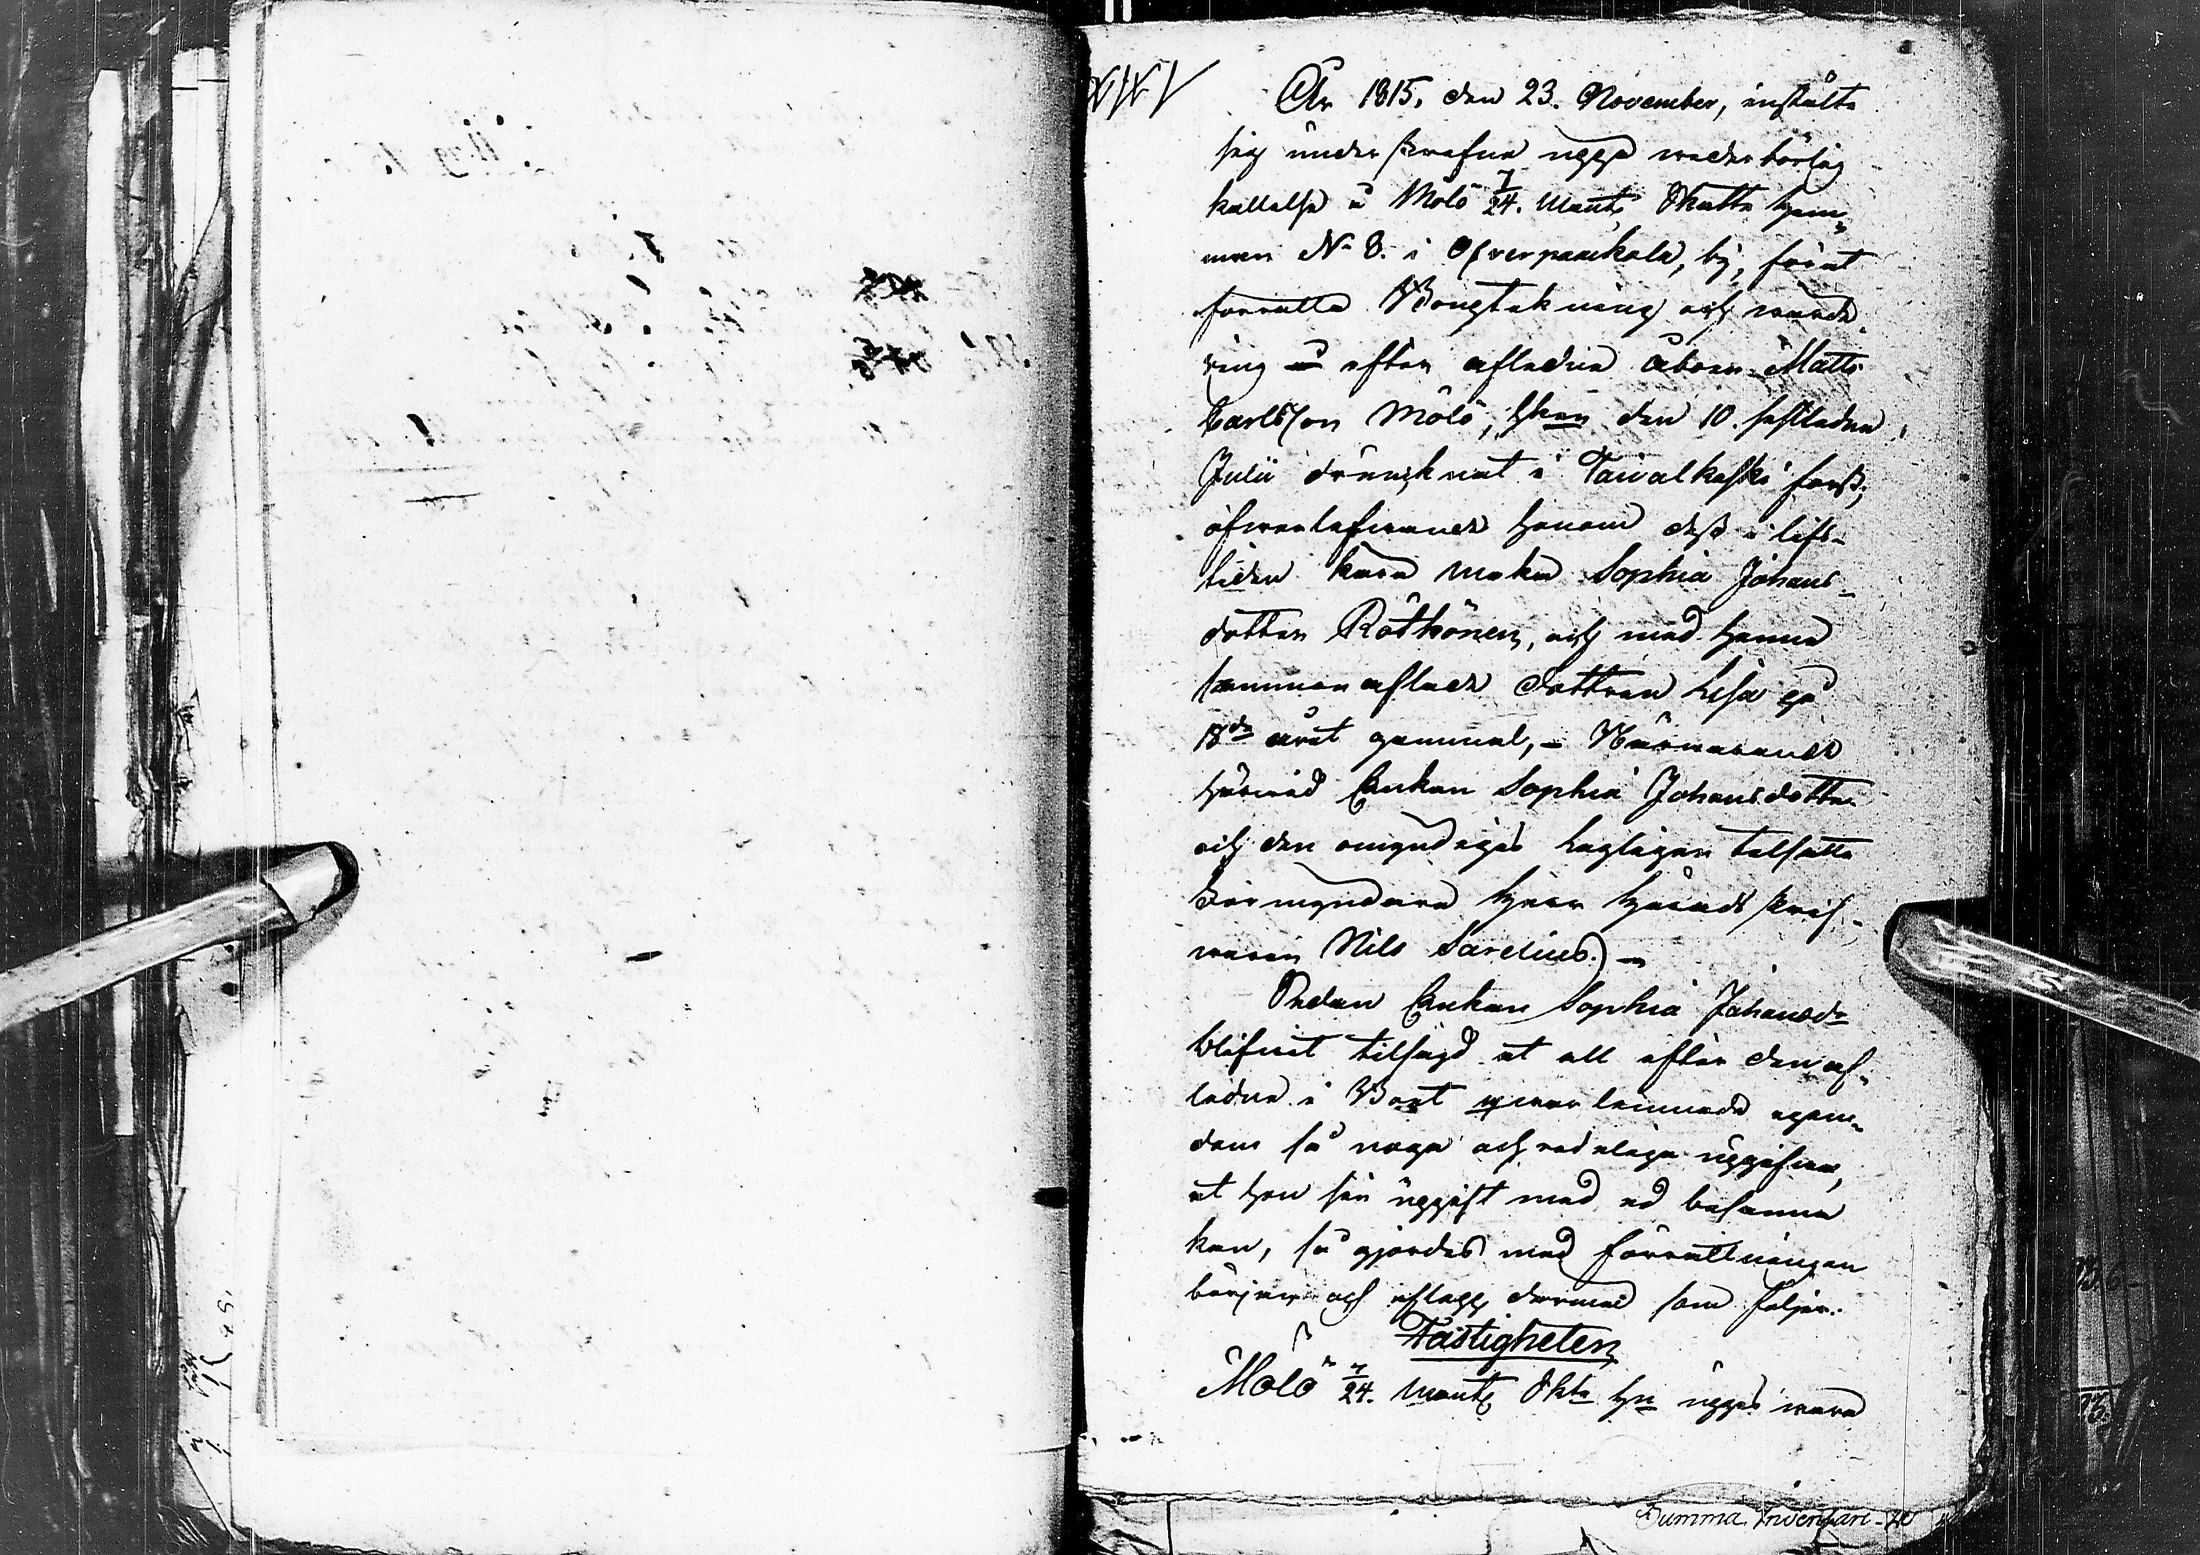 År 1815, den 23. November, instälte
sig underskrefne uppå wederbörlig
kallelse å Mölö 7/24. Mant: Skatte hem„
man No 8. i Öfverpaackola, by, för at
förrätta Bouptekning och wärde„
ring efter afledne Åboen Matts
Carlsson Mölö, hkn den 10. sistledne
Julii drunknat i Taivalkoski forss,
öfwerlefwande honom dess i lifs-
tiden kära maka Sophia Johans-
dotter Röthönen, och med henne
sammanaflade dottren Lisa på
18de året gammal, - Närwarande
härwid Enkan Sophia Johansdotter
och den omyndiges Lagligen tilsatte
Förmyndare Herr Häradsskrif-
waren Nils Sarelius. -
Sedan Enkan Sophia Johansdr
blifwit tilsagd at all efter den af-
ledne i Boet qwarlemnad egen„
dom så noga och redeliga uppgifwa,
at hon sin uppgift med ed besanna
kan, så gjordes med förrättningen
början och aflopp dermed som följer.
Fastigheten
Mölö 7/24. Mant: Skte Hn uppgs wara
Summa Inventari